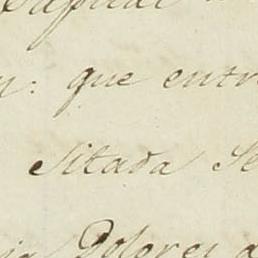 Capital
que entr
sitada Se
Dolores a